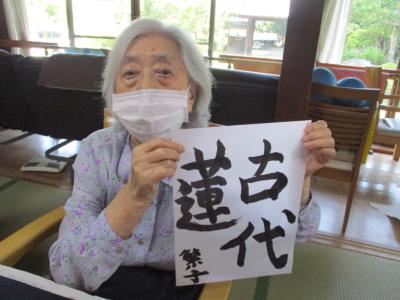 古代
蓮
繁子